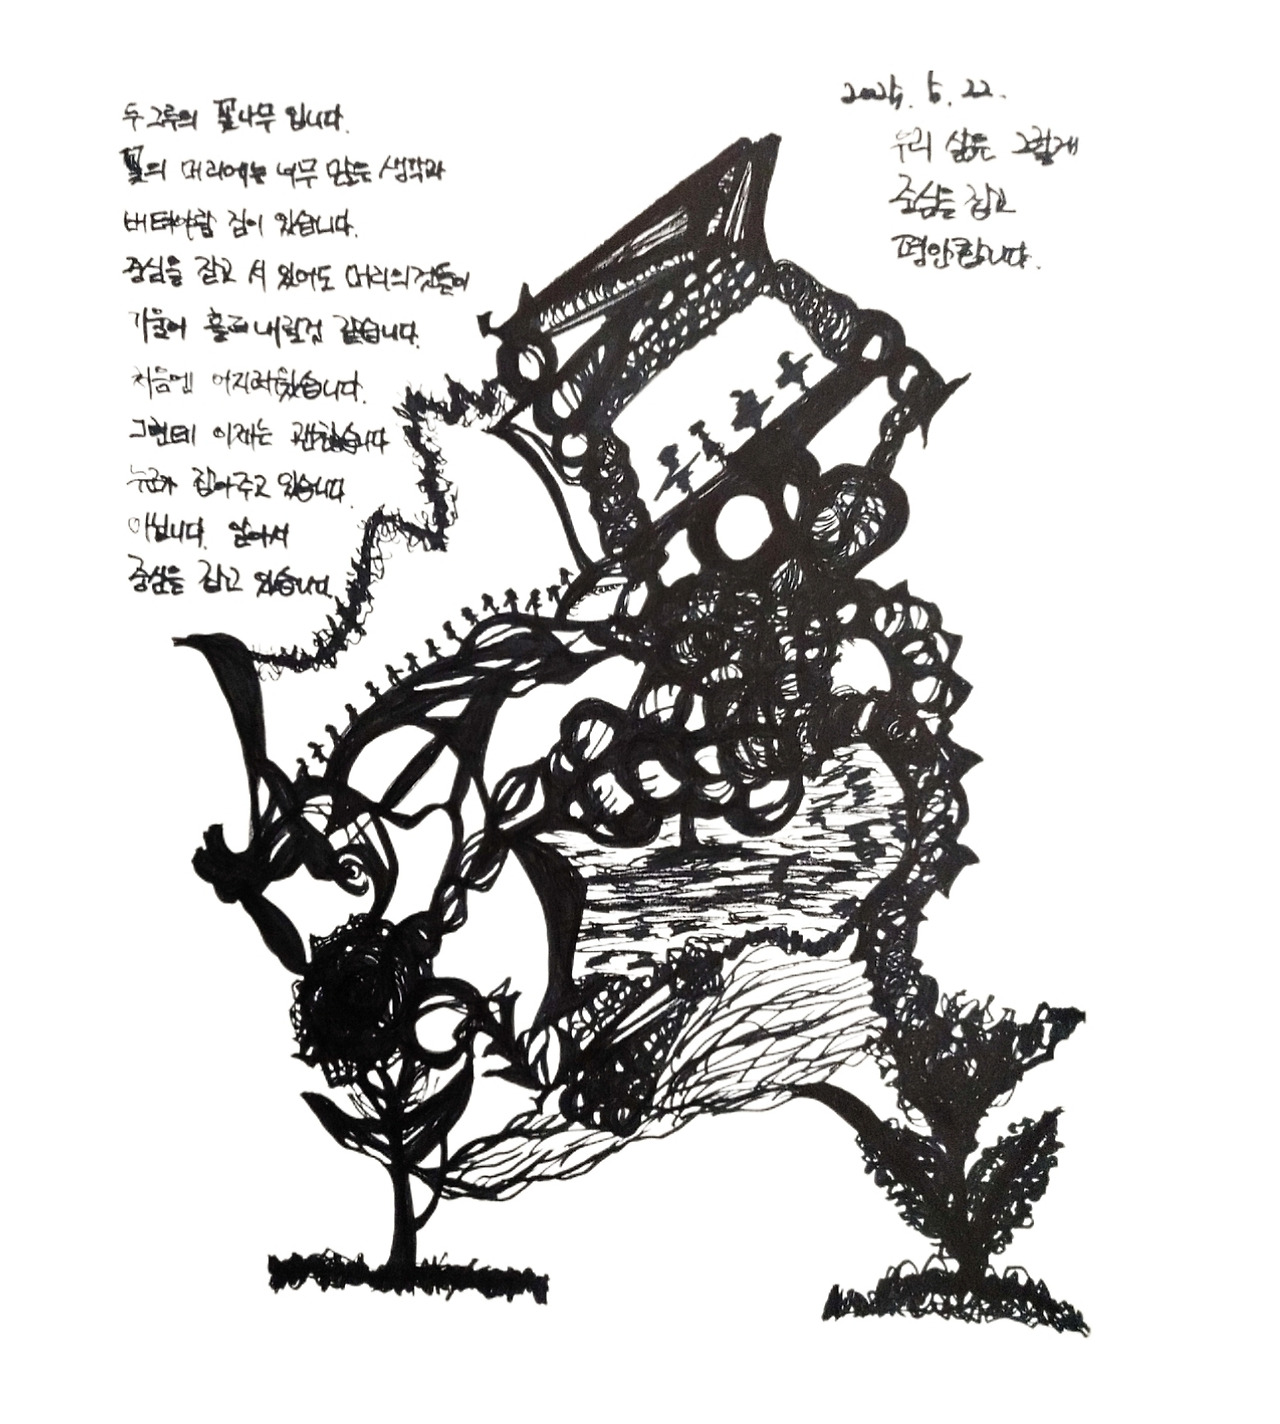 두 그루의 꽃나무 입니다.
꽃의 머리에는 너무 많은 생각과
버텨야할 짐이 있습니다.
중심을 잡고 서 있어도 머리의 것들이
기울어 흘러내릴것 같습니다.
처음엔 어지러웠습니다.
그런데 이제는 괜찮습니다
누군가 잡아주고 있습니다
아닙니다. 알아서
중심을 잡고 있습니다.
5. 22.
우리 삶은 그렇게
중심을 잡고
평안합니다.